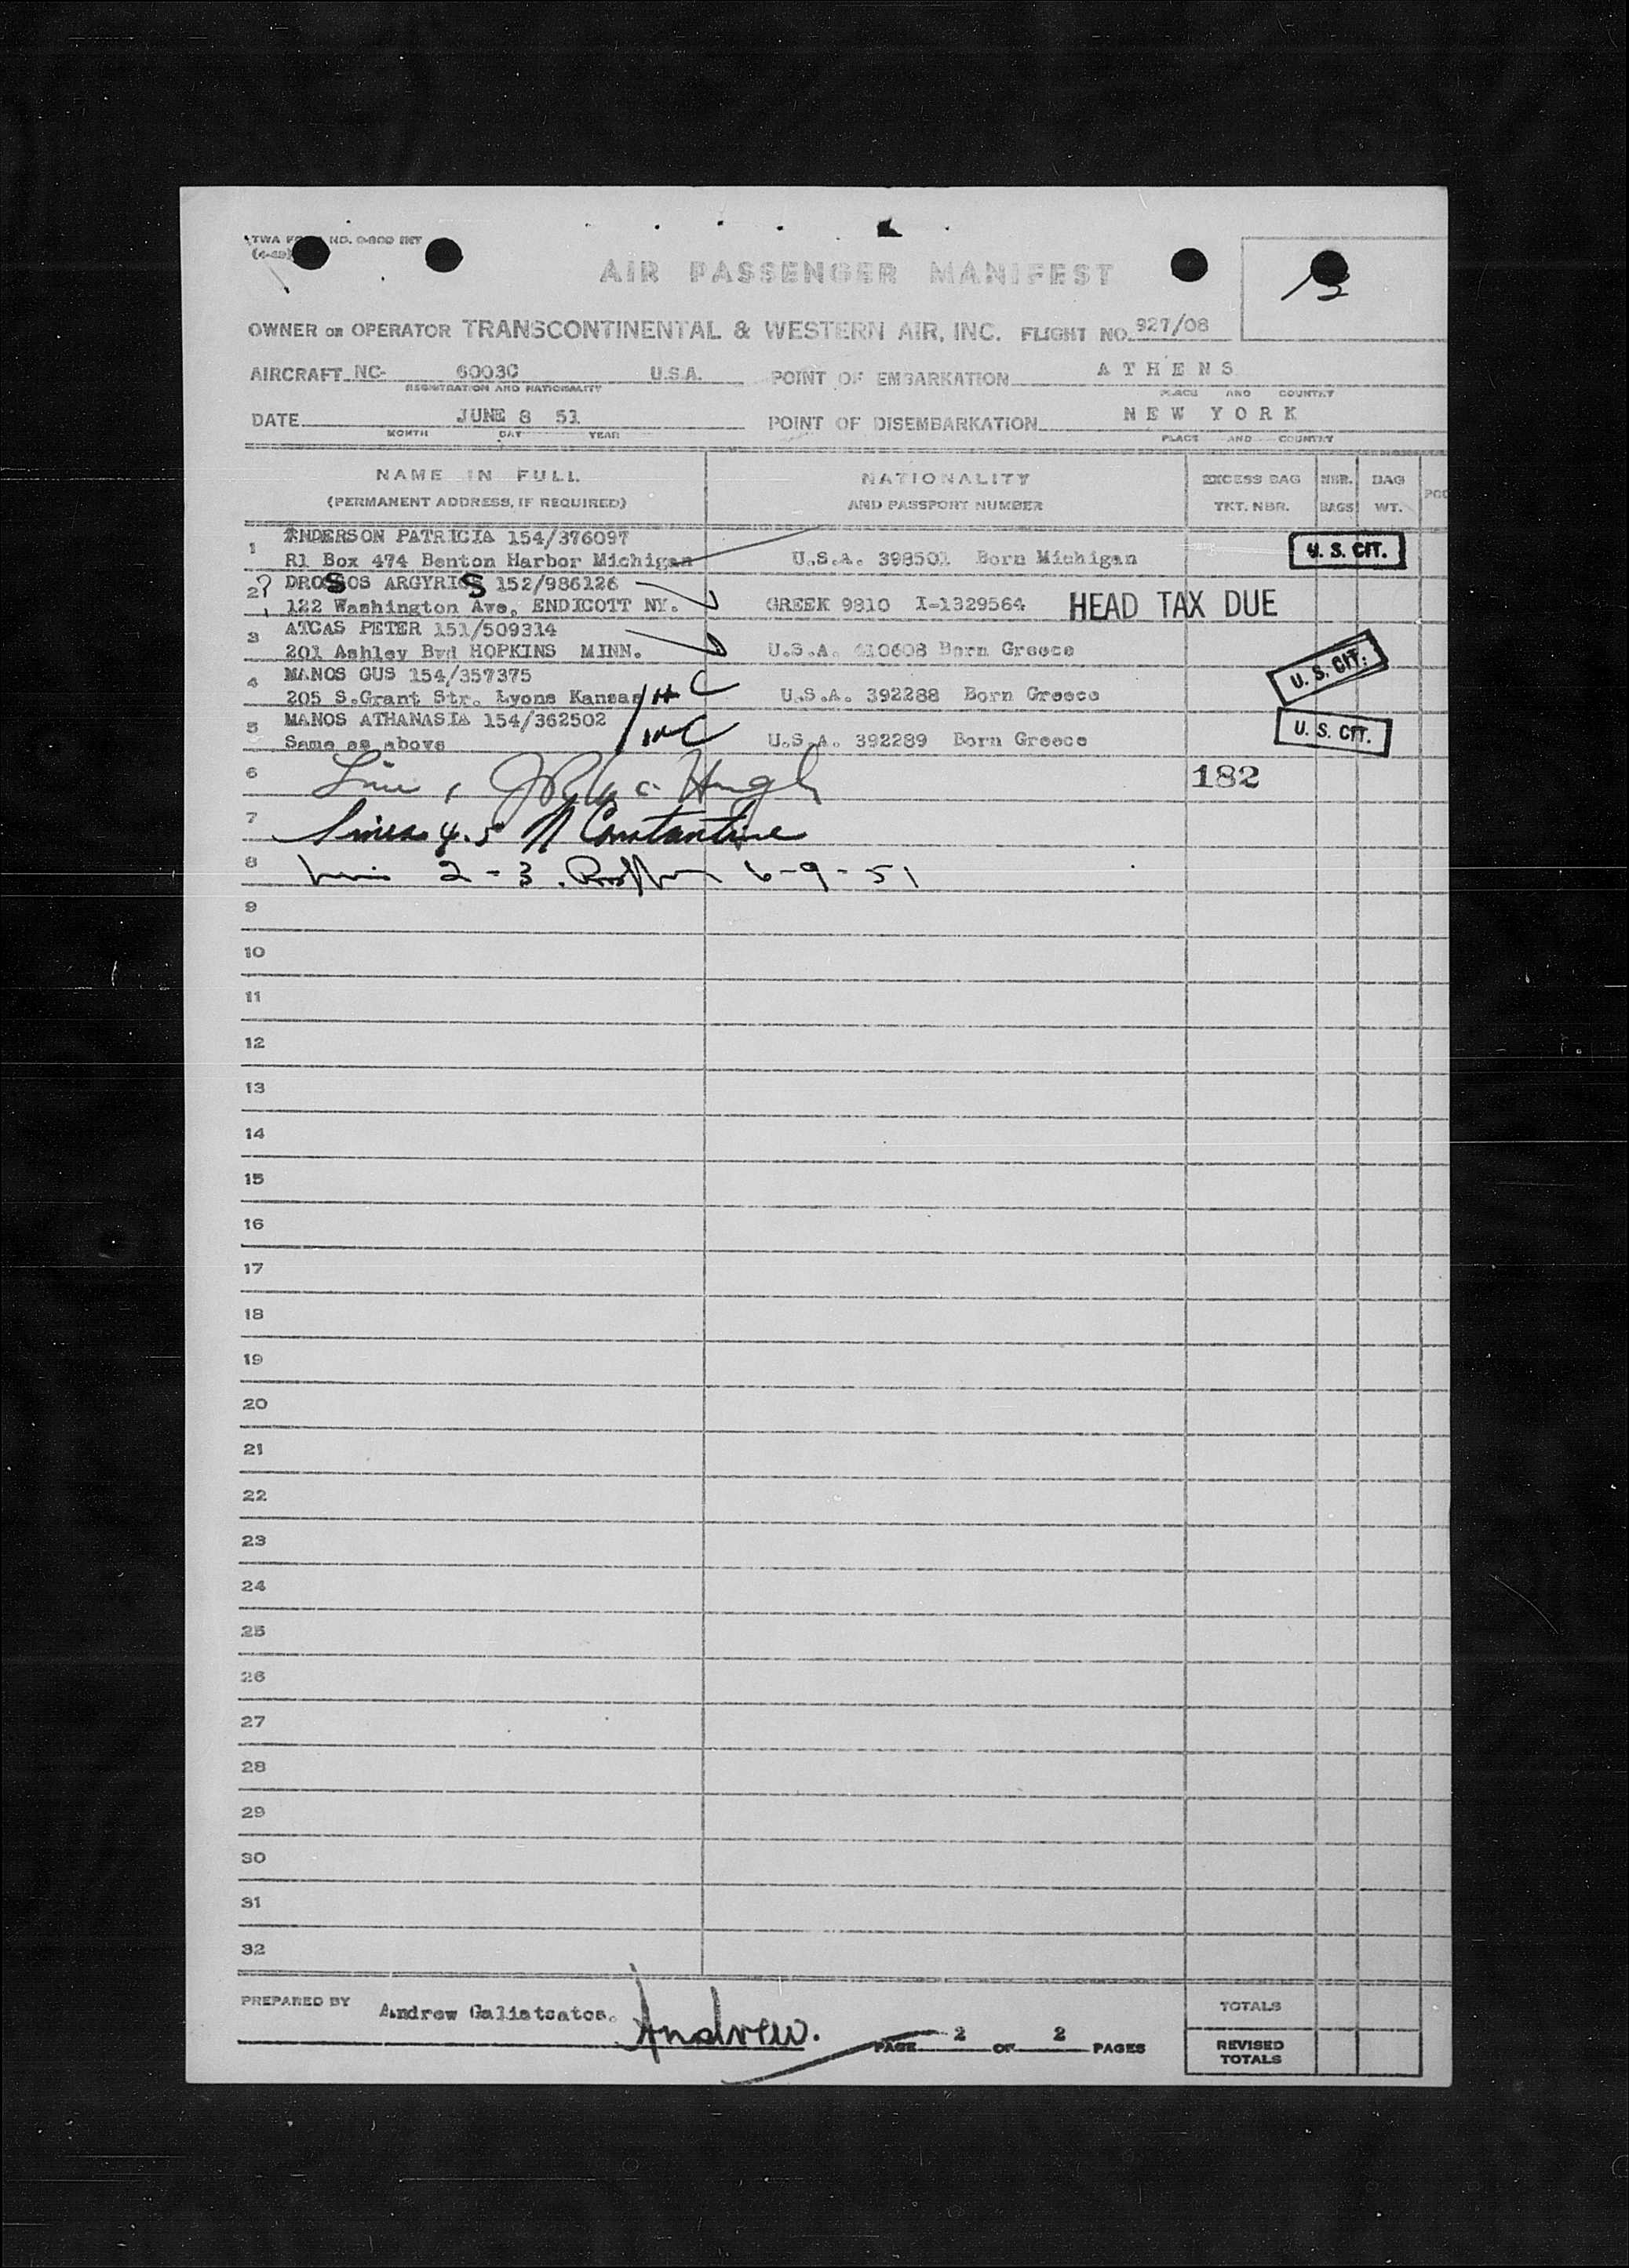 TWA NO. 0-800 INT
AIR PASSENGER MANIFEST
OWNER OR OPERATOR TRANSCONTINENTAL & WESTERN AIR, INC. FLIGHT NO. 927/08
AIRCRAFT NC- 6003C U.S.A. POINT OF EMBARKATION ATHENS
REGISTRATION AND NATIONALITY PLACE AND COUNTRY
DATE JUNE 8 51 POINT OF DISEMBARKATION NEW YORK
MONTH DAY YEAR PLACE AND COUNTRY
NAME IN FULL NATIONALITY EXCESS BAG NBR. BAG
(PERMANENT ADDRESS, IF REQUIRED) AND PASSPORT NUMBER TKT. NBR. BAGS WT.
ANDERSON PATRICIA 154/376097
1 R1 Box 474 Benton Harbor Michigan U.S.A. 398501 Born Michigan U. S. CIT.
DROSSOS ARGYRIOS 152/986126
2 122 Washington Ave, ENDICOTT NY. GREEK 9810 I-1329564 HEAD TAX DUE
ATCAS PETER 151/509314
3 201 Ashley Bvd HOPKINS MINN. U.S.A. 410608 Born Greece
MANOS GUS 154/357375
4 205 S.Grant Str. Lyons Kansas U.S.A. 392288 Born Greece U. S. CIT.
MANOS ATHANASIA 154/362502
5 Same as above U.S.A. 392289 Born Greece U. S. CIT.
6 Line 1 182
7 Lines 4.5 N Constantine
8 2-3 6-9-51
9
10
11
12
13
14
15
16
17
18
19
20
21
22
23
24
25
26
27
28
29
30
31
32
PREPARED BY Andrew Galiatsatos. Andrew. PAGE 2 OF 2 PAGES
TOTALS
REVISED
TOTALS